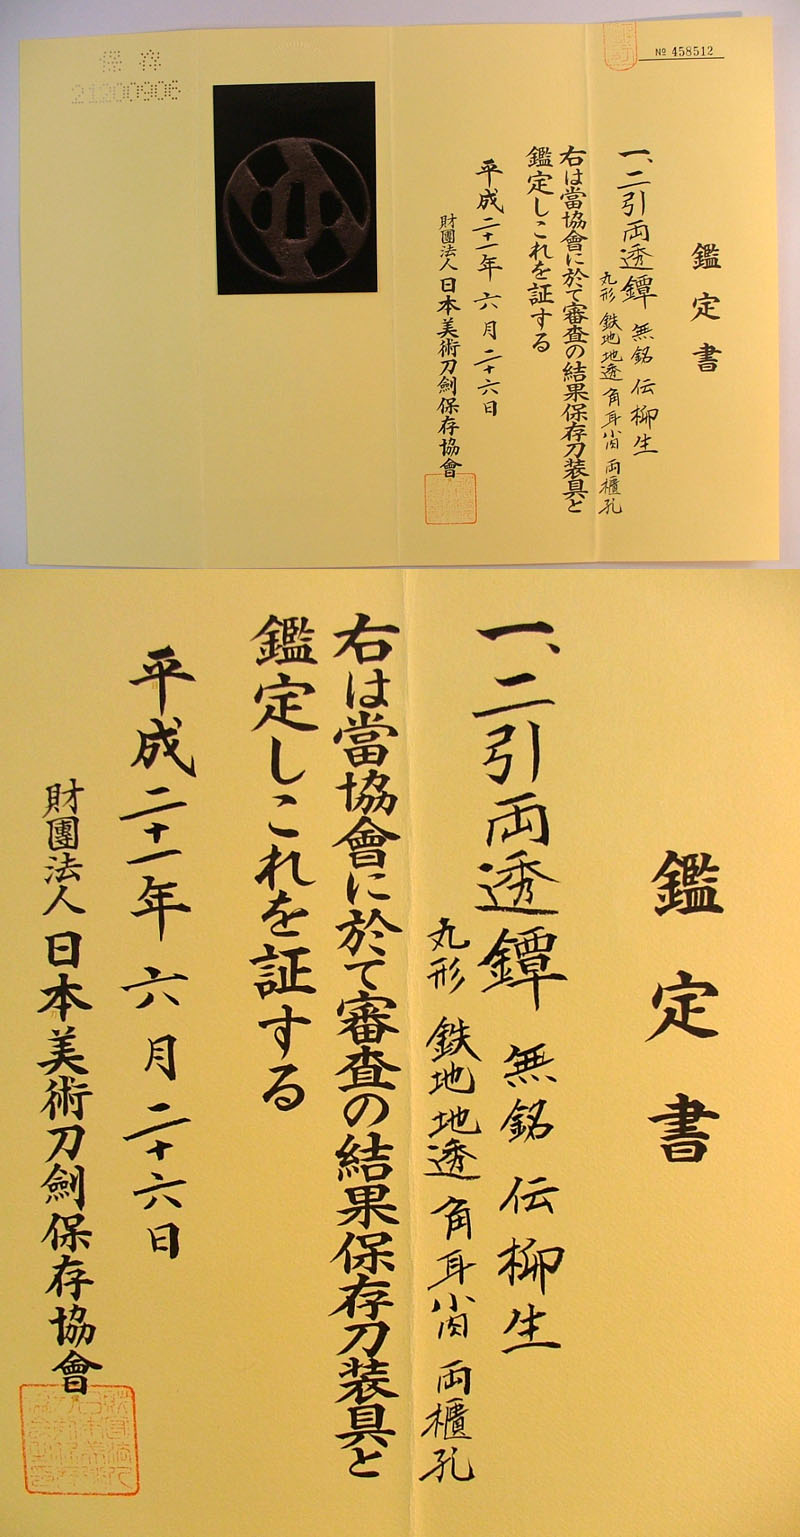 № 458512
鑑定書
一、二引両透鐔 無銘 伝柳生
丸形 鉄地地透 角耳小肉 両櫃孔
右は當協會に於て審査の結果保存刀装具と
鑑定しこれを証する
平成二十一年六月二十六日
財團法人日本美術刀劍保存協會
保存
21200906
鑑定書
一、二引両透鐔 無銘 伝柳生
丸形 鉄地地透 角耳小肉 両櫃孔
右は當協會に於て審査の結果保存刀装具と
鑑定しこれを証する
平成二十一年六月二十六日
財團法人日本美術刀劍保存協會